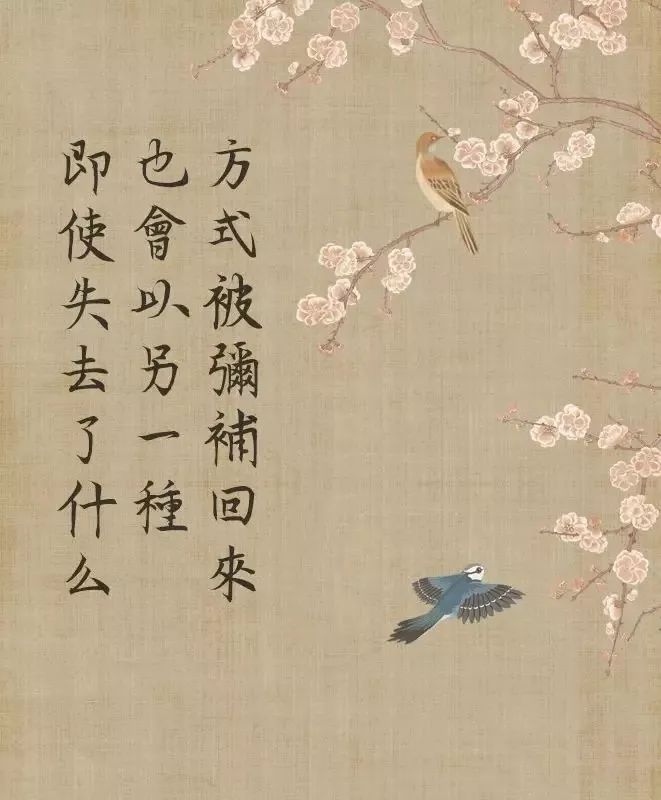 即使失去了什么
也會以另一種
方式被彌補回來